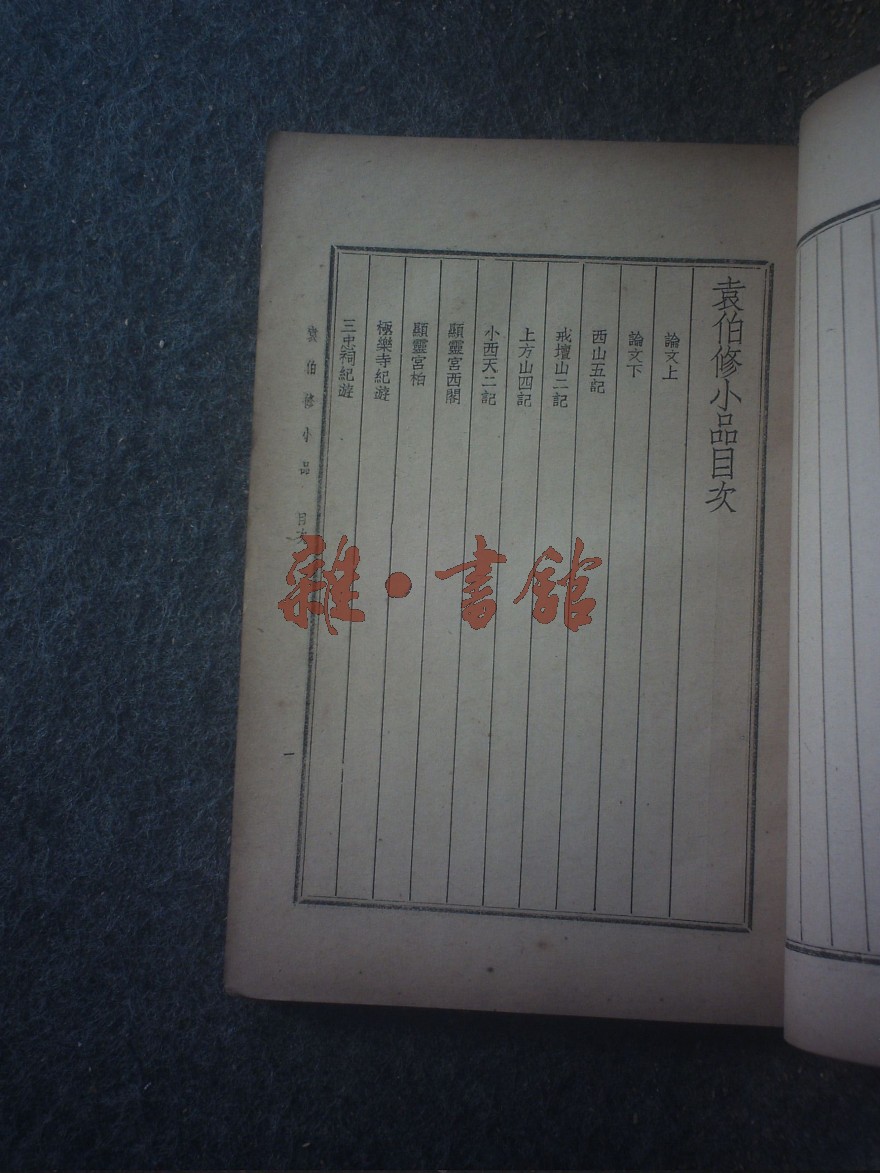 袁伯修小品目次
論文上
論文下
西山五記
戒壇山二記
上方山四記
小西天二記
顯靈宮西閣
顯靈宮柏
極樂寺紀遊
三忠祠紀遊
袁伯修小品 目次
一
雜·書館